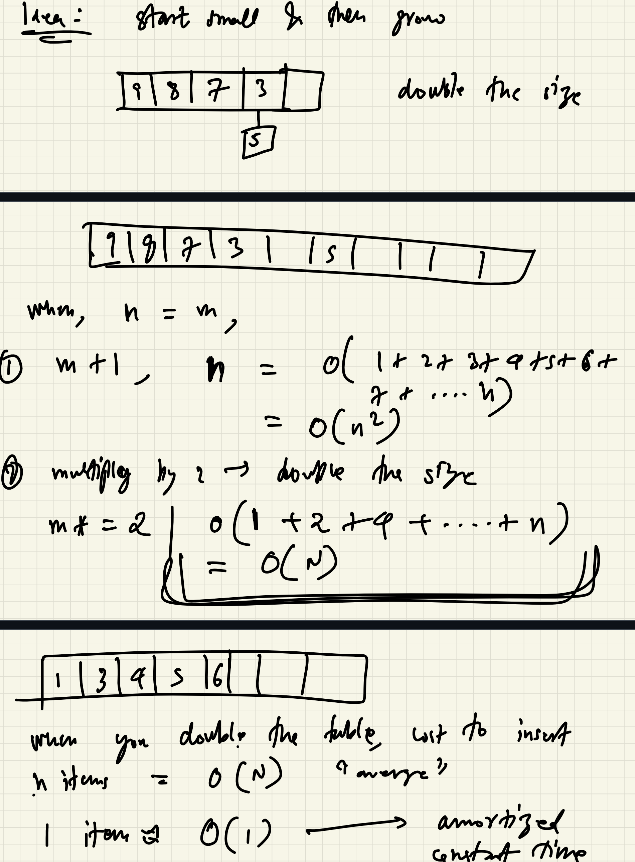 Idea: start small & then grow
9 8 7 3
double the size
5
9 8 7 3 5
when, n = m,
① m+1, n = O( 1+2+3+4+5+6+
7+ .... n)
= O(n²)
② multiply by 2 → double the size
m* = 2 O(1+2+4+.....+n)
= O(N)
1 3 4 5 6
when you double the table, cost to insert
n items = O(N) "average"
1 item = O(1) → amortized
constant time